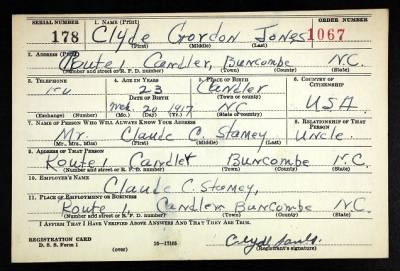 SERIAL NUMBER 1. NAME (Print) ORDER NUMBER
178 Clyde Gordon Jones 1067
(First) (Middle) (Last)
2. ADDRESS (Print)
Route 1 Candler, Buncombe N.C.
(Number and street or R. F. D. number) (Town) (County) (State)
3. TELEPHONE 4. AGE IN YEARS 5. PLACE OF BIRTH 6. COUNTRY OF CITIZENSHIP
23 Candler
DATE OF BIRTH (Town or county)
20 1917 N.C. U.S.A.
(Exchange) (Number) (Mo.) (Day) (Yr.) (State or country)
7. NAME OF PERSON WHO WILL ALWAYS KNOW YOUR ADDRESS 8. RELATIONSHIP OF THAT PERSON
Mr. Claude C. Stamey Uncle.
(Mr., Mrs., Miss) (First) (Middle) (Last)
9. ADDRESS OF THAT PERSON
Route 1 Candler Buncombe N.C.
(Number and street or R. F. D. number) (Town) (County) (State)
10. EMPLOYER'S NAME
Claude C. Stamey,
11. PLACE OF EMPLOYMENT OR BUSINESS
Route 1, Candler Buncombe N.C.
(Number and street or R. F. D. number) (Town) (County) (State)
I AFFIRM THAT I HAVE VERIFIED ABOVE ANSWERS AND THAT THEY ARE TRUE.
REGISTRATION CARD
D. S. S. Form 1 (over) 16—17105 Clyde Jones
(Registrant's signature)